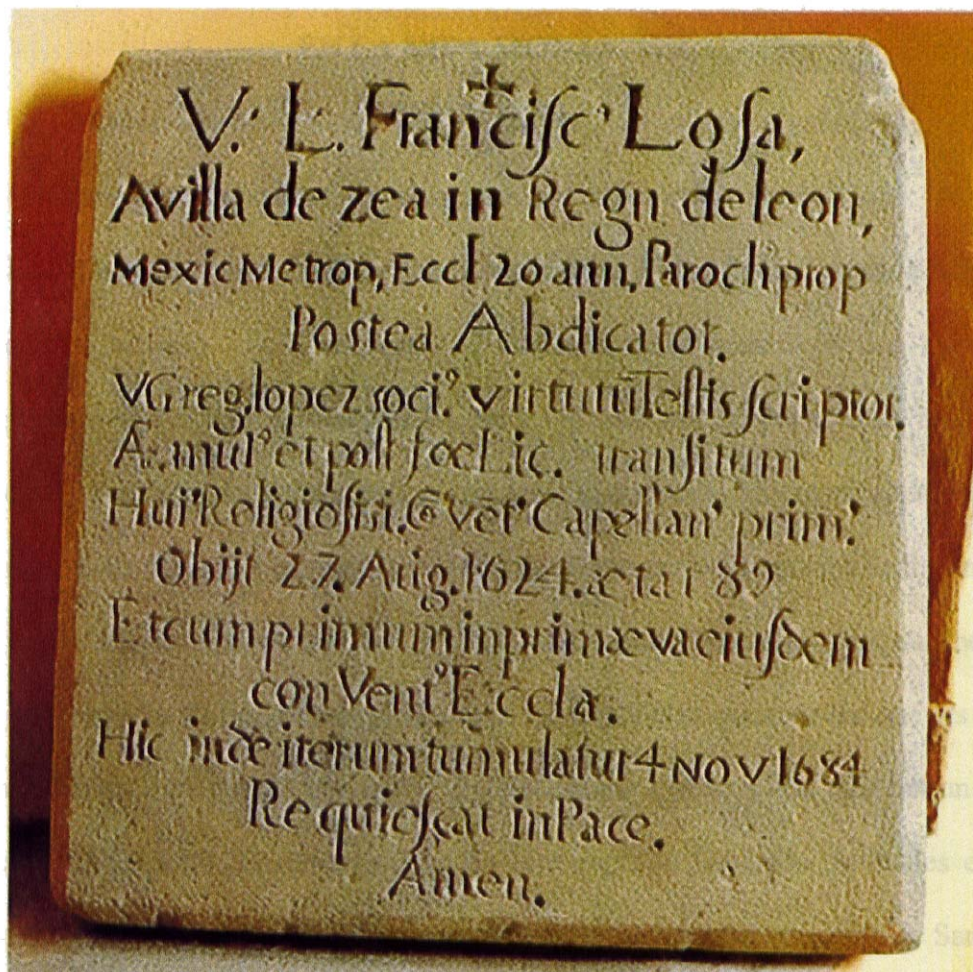 V. L. Francisc⁹ Losa,
A villa de zea in Regn de leon,
Mexic Metrop, Eccl 20 ann, Paroch⁹ prop
Postea Abdicator.
V Greg, lopez soci⁹ virtutũ Testis scriptor,
Æmul⁹ et post foelic. transitum
Hui⁹ Religiosisi. Cõvẽt⁹ Capellan⁹ prim⁹.
Obijt 27. Aug. 1624. ætat 89
Et cum primum in primæva eiusdem
conVent⁹ Eccla.
Hic inde iterum tumulatur 4 NOV 1684
Requiescat in Pace.
Amen.